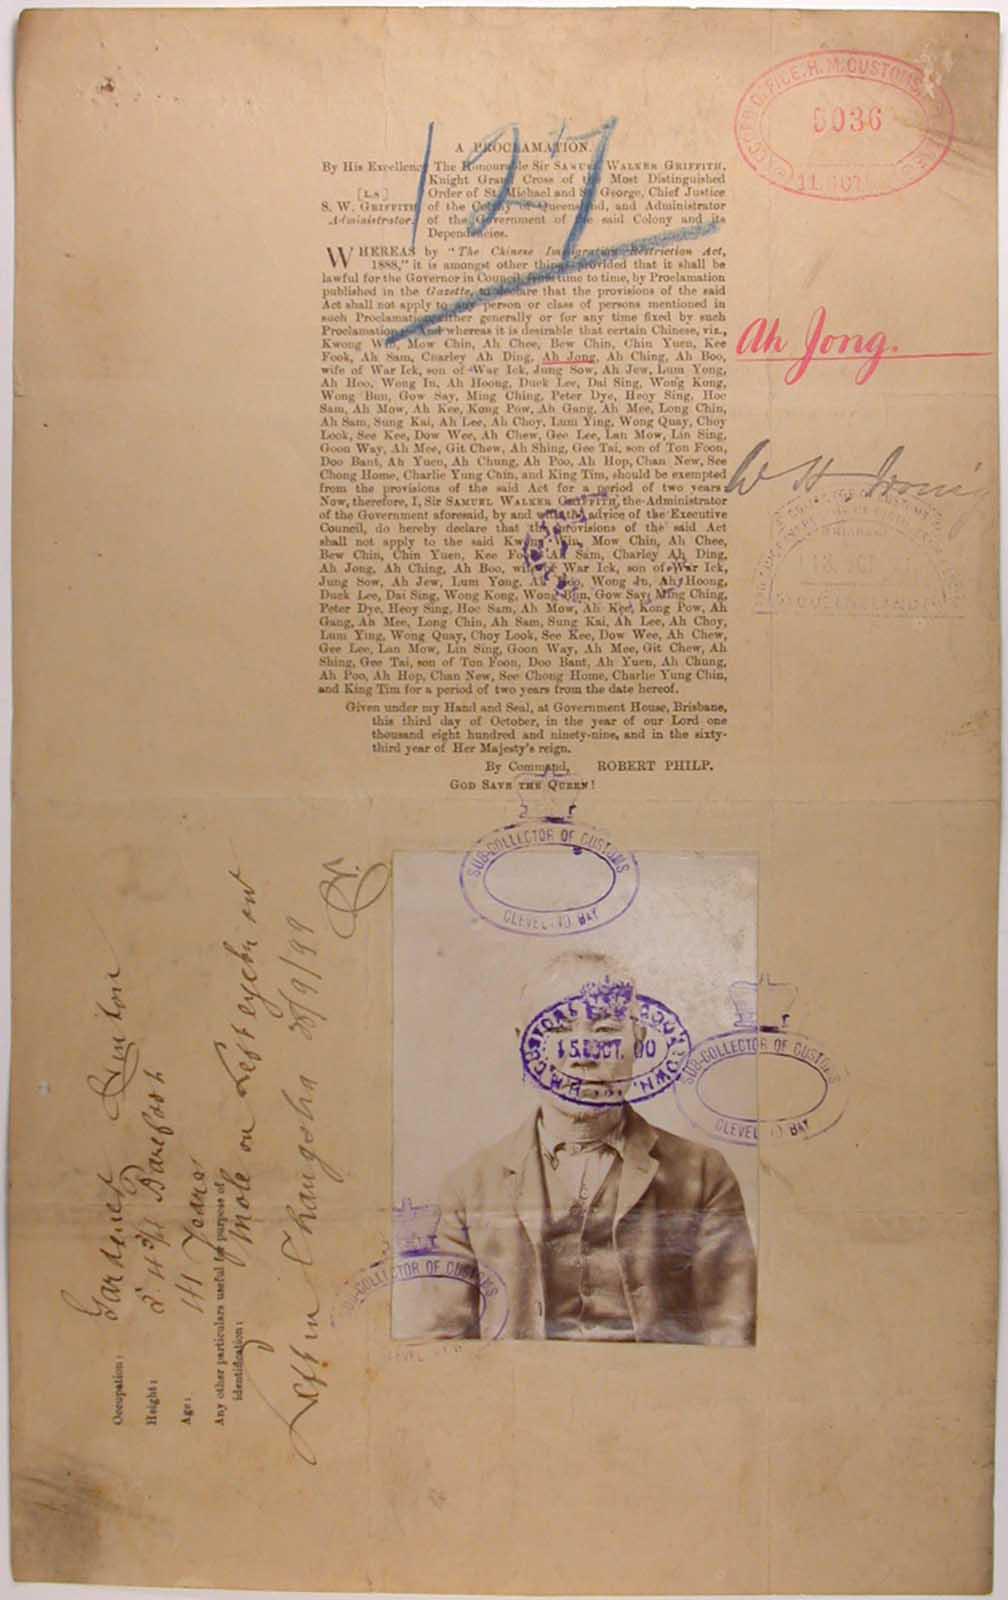 127
RECORD OFFICE. H. M. CUSTOMS
5036
11. OCT
A PROCLAMATION.
By His Excellency The Honourable Sir SAMUEL WALKER GRIFFITH,
Knight Grand Cross of the Most Distinguished
[L.S] Order of St. Michael and St. George, Chief Justice
S. W. GRIFFITH of the Colony of Queensland, and Administrator
Administrator. of the Government of the said Colony and its
Dependencies.
WHEREAS by "The Chinese Immigration Restriction Act,
1888," it is amongst other things provided that it shall be
lawful for the Governor in Council, from time to time, by Proclamation
published in the Gazette, to declare that the provisions of the said
Act shall not apply to any person or class of persons mentioned in
such Proclamation, either generally or for any time fixed by such
Proclamation: And whereas it is desirable that certain Chinese, viz.,
Kwong Win, Mow Chin, Ah Chee, Bew Chin, Chin Yuen, Kee
Fook, Ah Sam, Charley Ah Ding, Ah Jong, Ah Ching, Ah Boo,
wife of War Ick, son of War Ick, Jung Sow, Ah Jew, Lum Yong,
Ah Hoo, Wong In, Ah Hoong, Duck Lee, Dai Sing, Wong Kong,
Wong Bun, Gow Say, Ming Ching, Peter Dye, Heoy Sing, Hoc
Sam, Ah Mow, Ah Kee, Kong Pow, Ah Gang, Ah Mee, Long Chin,
Ah Sam, Sung Kai, Ah Lee, Ah Choy, Lum Ying, Wong Quay, Choy
Look, See Kee, Dow Wee, Ah Chew, Gee Lee, Lan Mow, Lin Sing,
Goon Way, Ah Mee, Git Chew, Ah Shing, Gee Tai, son of Ton Foon,
Doo Bant, Ah Yuen, Ah Chung, Ah Poo, Ah Hop, Chan New, See
Chong Home, Charlie Yung Chin, and King Tim, should be exempted
from the provisions of the said Act for a period of two years:
Now, therefore, I, Sir SAMUEL WALKER GRIFFITH, the Administrator
of the Government aforesaid, by and with the advice of the Executive
Council, do hereby declare that the provisions of the said Act
shall not apply to the said Kwong Win, Mow Chin, Ah Chee,
Bew Chin, Chin Yuen, Kee Fook, Ah Sam, Charley Ah Ding,
Ah Jong, Ah Ching, Ah Boo, wife of War Ick, son of War Ick,
Jung Sow, Ah Jew, Lum Yong, Ah Hoo, Wong In, Ah Hoong,
Duck Lee, Dai Sing, Wong Kong, Wong Bun, Gow Say, Ming Ching,
Peter Dye, Heoy Sing, Hoc Sam, Ah Mow, Ah Kee, Kong Pow, Ah
Gang, Ah Mee, Long Chin, Ah Sam, Sung Kai, Ah Lee, Ah Choy,
Lum Ying, Wong Quay, Choy Look, See Kee, Dow Wee, Ah Chew,
Gee Lee, Lan Mow, Lin Sing, Goon Way, Ah Mee, Git Chew, Ah
Shing, Gee Tai, son of Ton Foon, Doo Bant, Ah Yuen, Ah Chung,
Ah Poo, Ah Hop, Chan New, See Chong Home, Charlie Yung Chin,
and King Tim for a period of two years from the date hereof.
Given under my Hand and Seal, at Government House, Brisbane,
this third day of October, in the year of our Lord one
thousand eight hundred and ninety-nine, and in the sixty-
third year of Her Majesty's reign.
By Command, ROBERT PHILP.
GOD SAVE THE QUEEN!
Ah Jong.
W H Irving
BRISBANE
13. OCT
QUEENSLAND
SUB-COLLECTOR OF CUSTOMS
CLEVELAND BAY
H.M. CUSTOMS COOKTOWN.
15. OCT. 00
SUB-COLLECTOR OF CUSTOMS
CLEVELAND BAY
SUB-COLLECTOR OF CUSTOMS
Occupation: Gardener
Height: 5' 4 3/4 Barefoot
Age: 41 Years
Any other particulars useful for purpose of
identification: Mole on Left eyebrow
Left in Changsha 28/9/99